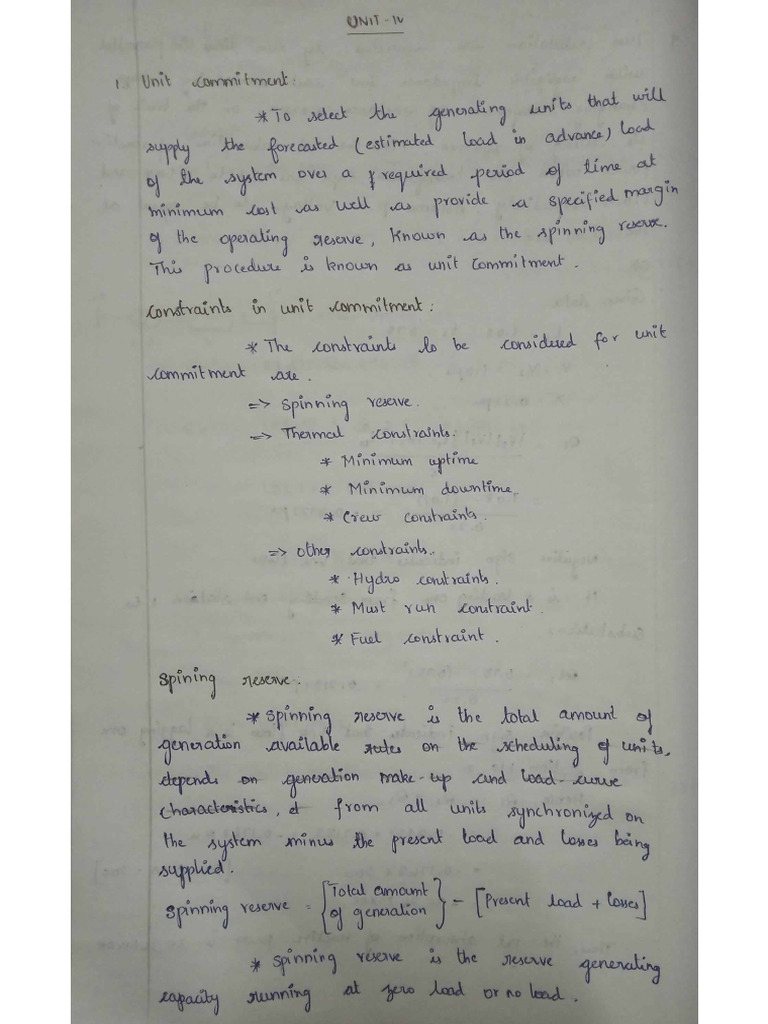 UNIT-IV
1. Unit commitment:
* To select the generating units that will
supply the forecasted (estimated load in advance) load
of the system over a required period of time at
minimum cost as well as provide a specified margin
of the operating reserve, known as the spinning reserve.
This procedure is known as unit commitment.
Constraints in unit commitment:
* The constraints to be considered for unit
commitment are.
=> Spinning reserve.
=> Thermal constraints.
* Minimum uptime
* Minimum downtime.
* Crew constraints.
=> Other constraints.
* Hydro constraints.
* Must run constraint.
* Fuel constraint.
Spining reserve:
* Spinning reserve is the total amount of
generation available rules on the scheduling of units,
depends on generation make-up and load-curve
characteristics, from all units synchronized on
the system minus the present load and losses being
supplied.
Spinning reserve = {Total amount of generation} - [Present load + losses]
* Spinning reserve is the reserve generating
capacity running at zero load or no load.